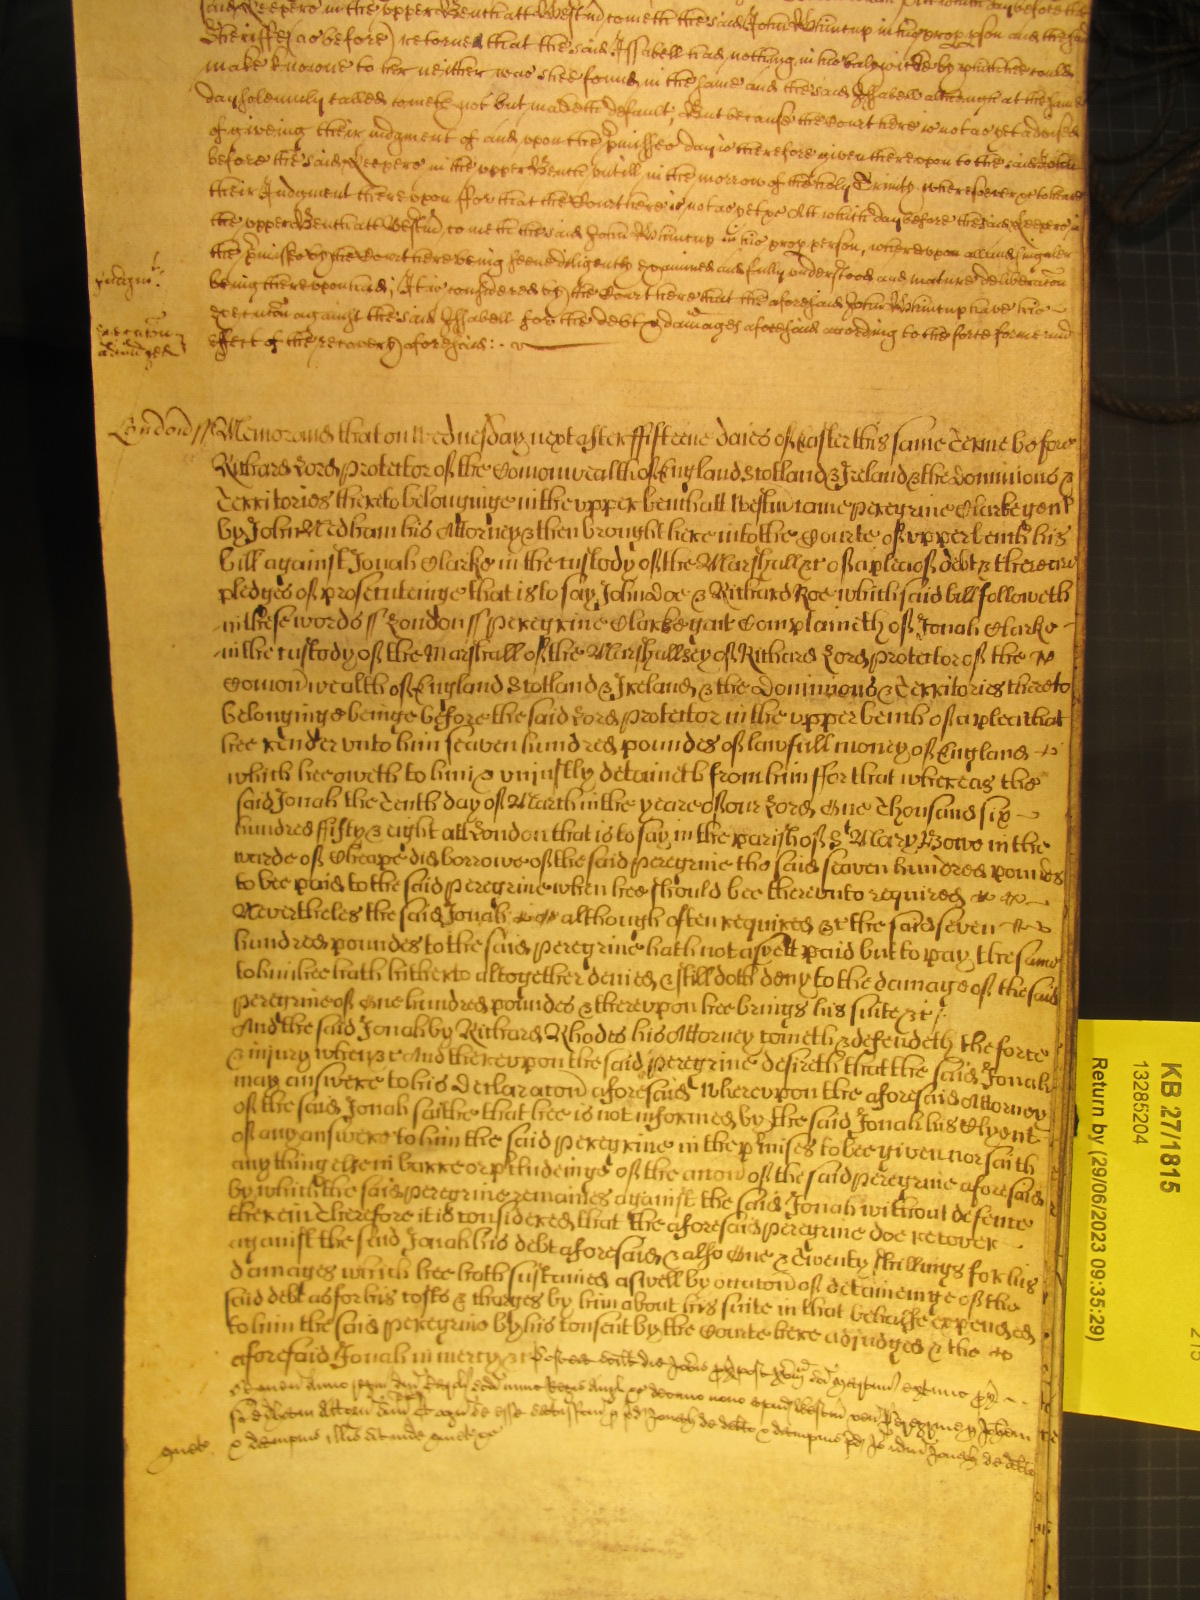 said Keepers in the upper Bench att Westm cometh the said John Whintup in his prop pson and the said
Sheriffe (as before) retorned that the said Issabell had nothing in his balywicke by which hee could
make knowne to her neither was shee found in the same and the said Issabell although at the same
day solemnly called cometh not but maketh default, But because the Court here is not as yet advised
of giveing their iudgment of and upon the pmisses day is therefore given thereupon to the said John
before the said Keepers in the upper Bench untill in the morrow of the holy Trinity wheresoever &c to heare
their Iudgment thereupon ffor that the Court here is not as yet &c Att which day before the said Keepers in
the upper Bench att Westm cometh the said John Whintup in his prop person, whereupon all and singuler
the pmisses by the Court here being seene diligently examined and fully understood and mature deliberacon
being thereupon had, It is considered by the Court here that the aforesaid John Whintup have his
execucon against the said Issabell for the debt & damages aforesaid according to the force forme and
effect of the recovery aforesaid:
Iudgmt:
London ss Memorand that on Wednesday next after ffifteene daies of Easter this same Terme before
Richard Lord Protector of the Comonwealth of England Scotland & Ireland & the Dominions &
Territories thereto belonginge in the upper bench att Westm came Peregrine Clarke gent
by John Nedham his Attorney & then brought here into the Courte of upper bench his
bill against Jonah Clarke in the custody of the Marshall &c of a plea of debt & there are
pledges of prosecuteinge that is to say John Doe & Richard Roe which said bill followeth
in these words ss London ss Peregrine Clarke gent Complaineth of Jonah Clarke
in the custody of the Marshall of the Marshallsey of Richard Lord Protector of the
Comonwealth of England Scotland & Ireland & the Dominions & Territories thereto
belonginge beinge before the said Lord Protector in the upper bench of a plea that
hee render unto him seaven hundred poundes of lawfull money of England
which hee oweth to him & uniustly detaineth from him ffor that whereas the
said Jonah the Tenth day of March in the yeare of our Lord One Thousand six
hundred ffifty & eight att London that is to say in the parish of St Mary Bowe in the
warde of Cheape did borrowe of the said Peregrine the said seaven hundred poundes
to bee paid to the said Peregrine when hee should bee thereunto required
Nevertheles the said Jonah although often required &c the said seven
hundred poundes to the said Peregrine hath not as yett paid but to pay the same
to him hee hath hitherto altogether denied & still doth deny to the damage of the said
Peregrine of One hundred poundes & thereupon hee brings his suite &c
And the said Jonah by Richard Rhodes his Attorney cometh & defendeth the force
& iniury when &c And thereupon the said Peregrine desireth that the said Jonah
may answere to his Declaracon aforesaid Whereupon the aforesaid Attorney
of the said Jonah saith that hee is not informed by the said Jonah his Clyent
of any answere to him the said Peregrine in the pmises to bee given nor saith
any thing else in barre or pcludeinge of the accon of the said Peregrine aforesaid
by which the said Peregrine remaines against the said Jonah without defence
therein Therefore it is considered that the aforesaid Peregrine doe recover
against the said Jonah his debt aforesaid & also One & Twenty shillings for his
damages which hee hath sustained aswell by occacon of detaineinge of the
said debt as for his costs & charges by him about his suite in that behalfe expended
to him the said Peregrine by his consent by the Courte here adiudged & the
aforesaid Jonah in mercy &c
KB 27/1815
13285204
Return by (29/06/2023 09:35:29)